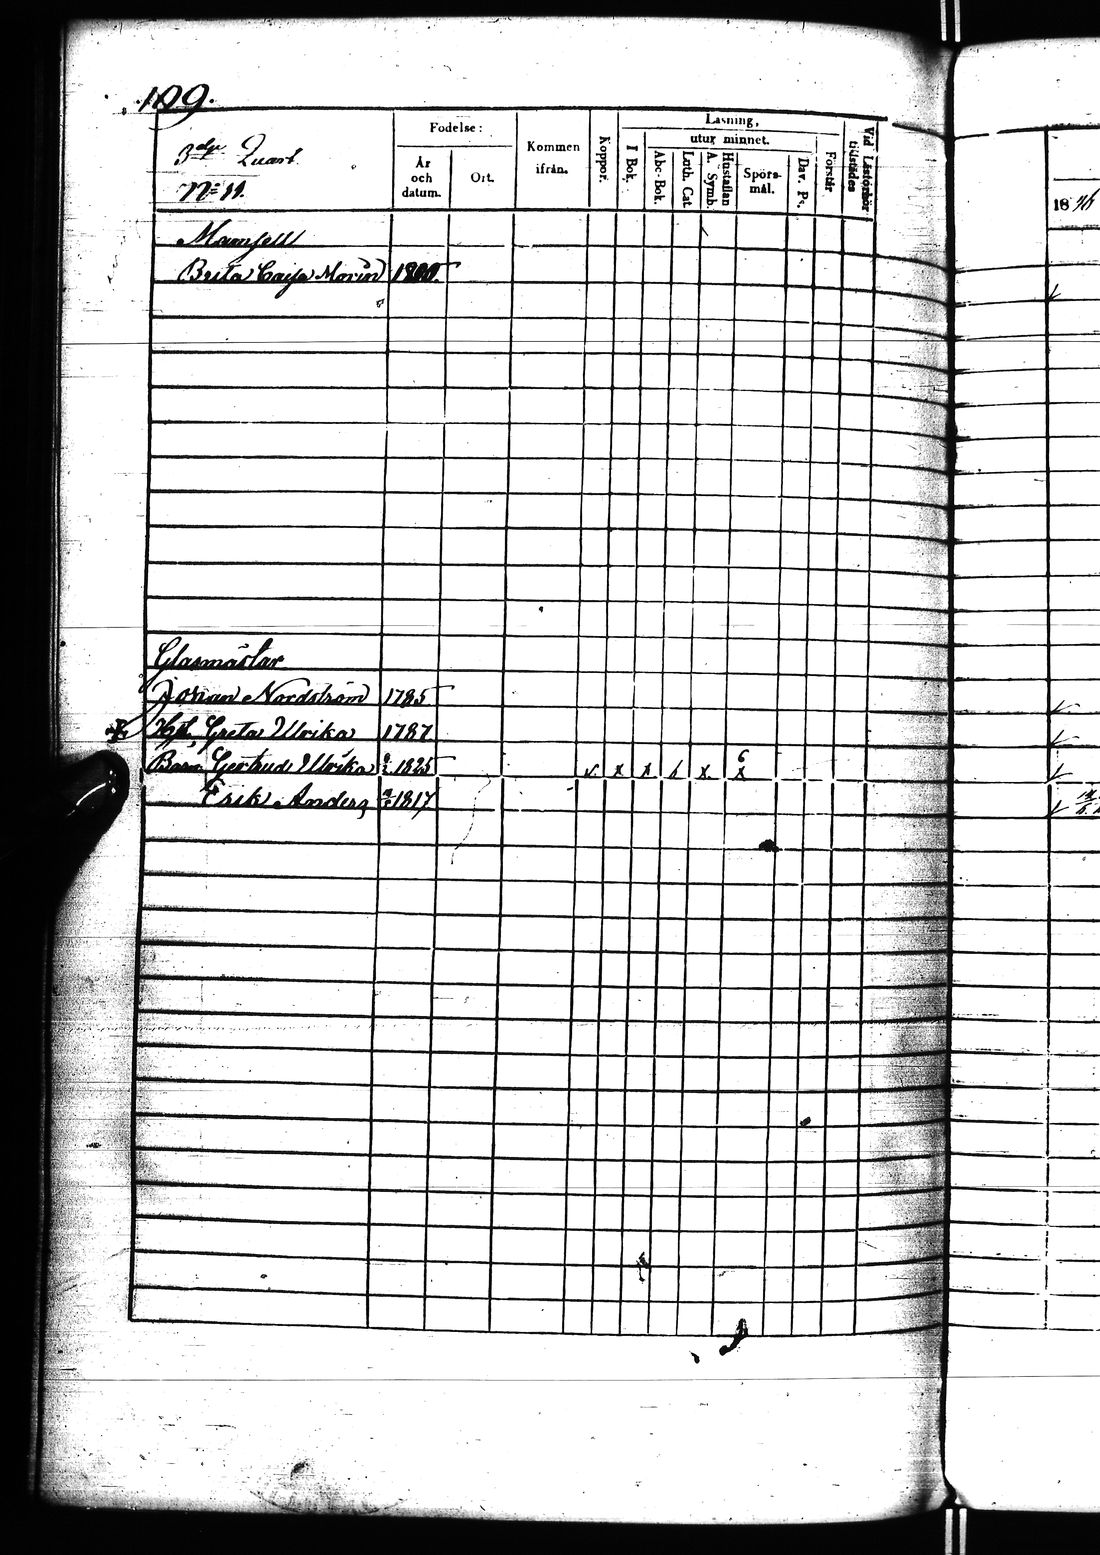 109.
3dje Quart.
Nº 11.
Födelse:
År och datum.
Ort.
Kommen ifrån.
Koppor.
Läsning,
utur minnet.
I Bok.
Abc-Bok.
Luth. Cat.
A. Symb.
Hustaflan
Spörsmål.
Dav. Ps.
Förstår
Vid Läsförhör tillstädes
1846
Mamsell
Brita Cajsa Morin 1800.
Glasmästar
Johan Nordström 1785
Hust. Greta Ulrika 1787
Barn Gertrud Ulrika 1825
Erik Anders 1817